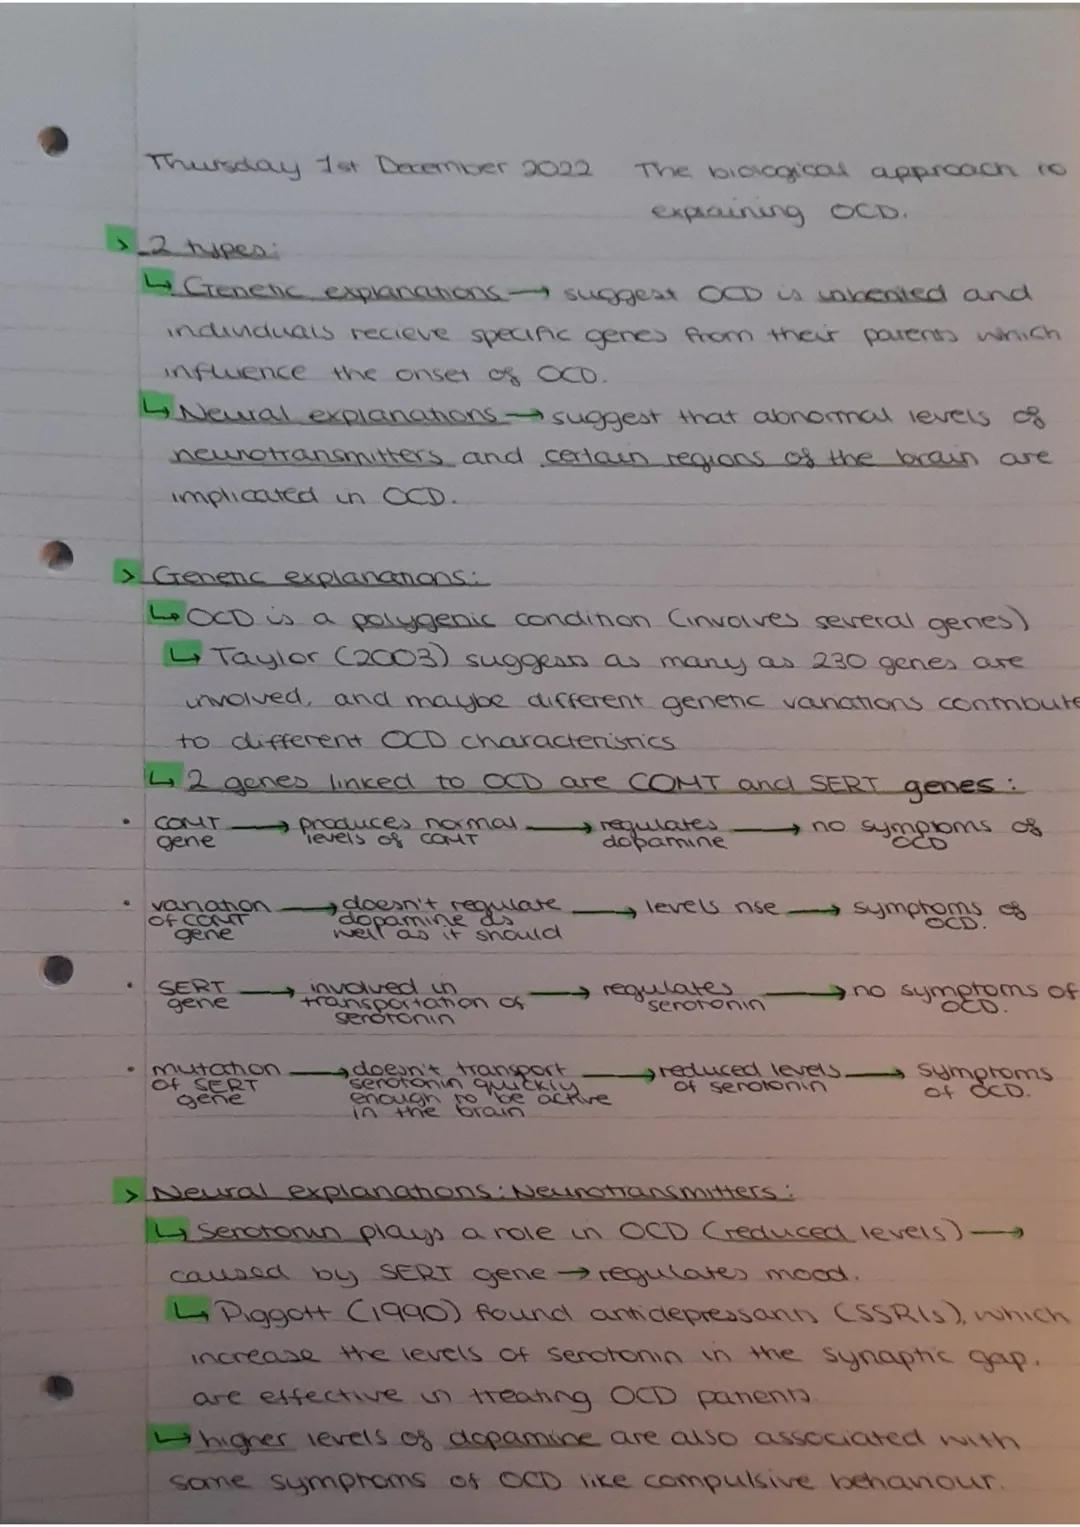 Thursday 1st December 2022 The biological approach to
explaining OCD.
> 2 types:
↳ Genetic explanations → suggest OCD is inherited and
individuals recieve specific genes from their parents which
influence the onset of OCD.
↳ Neural explanations → suggest that abnormal levels of
neurotransmitters and certain regions of the brain are
implicated in OCD.
> Genetic explanations:
↳ OCD is a polygenic condition (involves several genes)
↳ Taylor (2003) suggests as many as 230 genes are
involved, and maybe different genetic variations contribute
to different OCD characteristics
↳ 2 genes linked to OCD are COMT and SERT genes:
• COMT → produces normal → regulates → no symptoms of
gene levels of COMT dopamine OCD
• variation → doesn't regulate → levels rise → symptoms of
of COMT dopamine as OCD.
gene well as it should
• SERT → involved in → regulates → no symptoms of
gene transportation of serotonin OCD.
serotonin
• mutation → doesn't transport → reduced levels → symptoms
of SERT serotonin quickly of serotonin of OCD.
gene enough to be active
in the brain
> Neural explanations: Neurotransmitters:
↳ Serotonin plays a role in OCD (reduced levels) →
caused by SERT gene → regulates mood.
↳ Piggott (1990) found antidepressants (SSRIs), which
increase the levels of serotonin in the synaptic gap,
are effective in treating OCD patients.
↳ higher levels of dopamine are also associated with
some symptoms of OCD like compulsive behaviour.